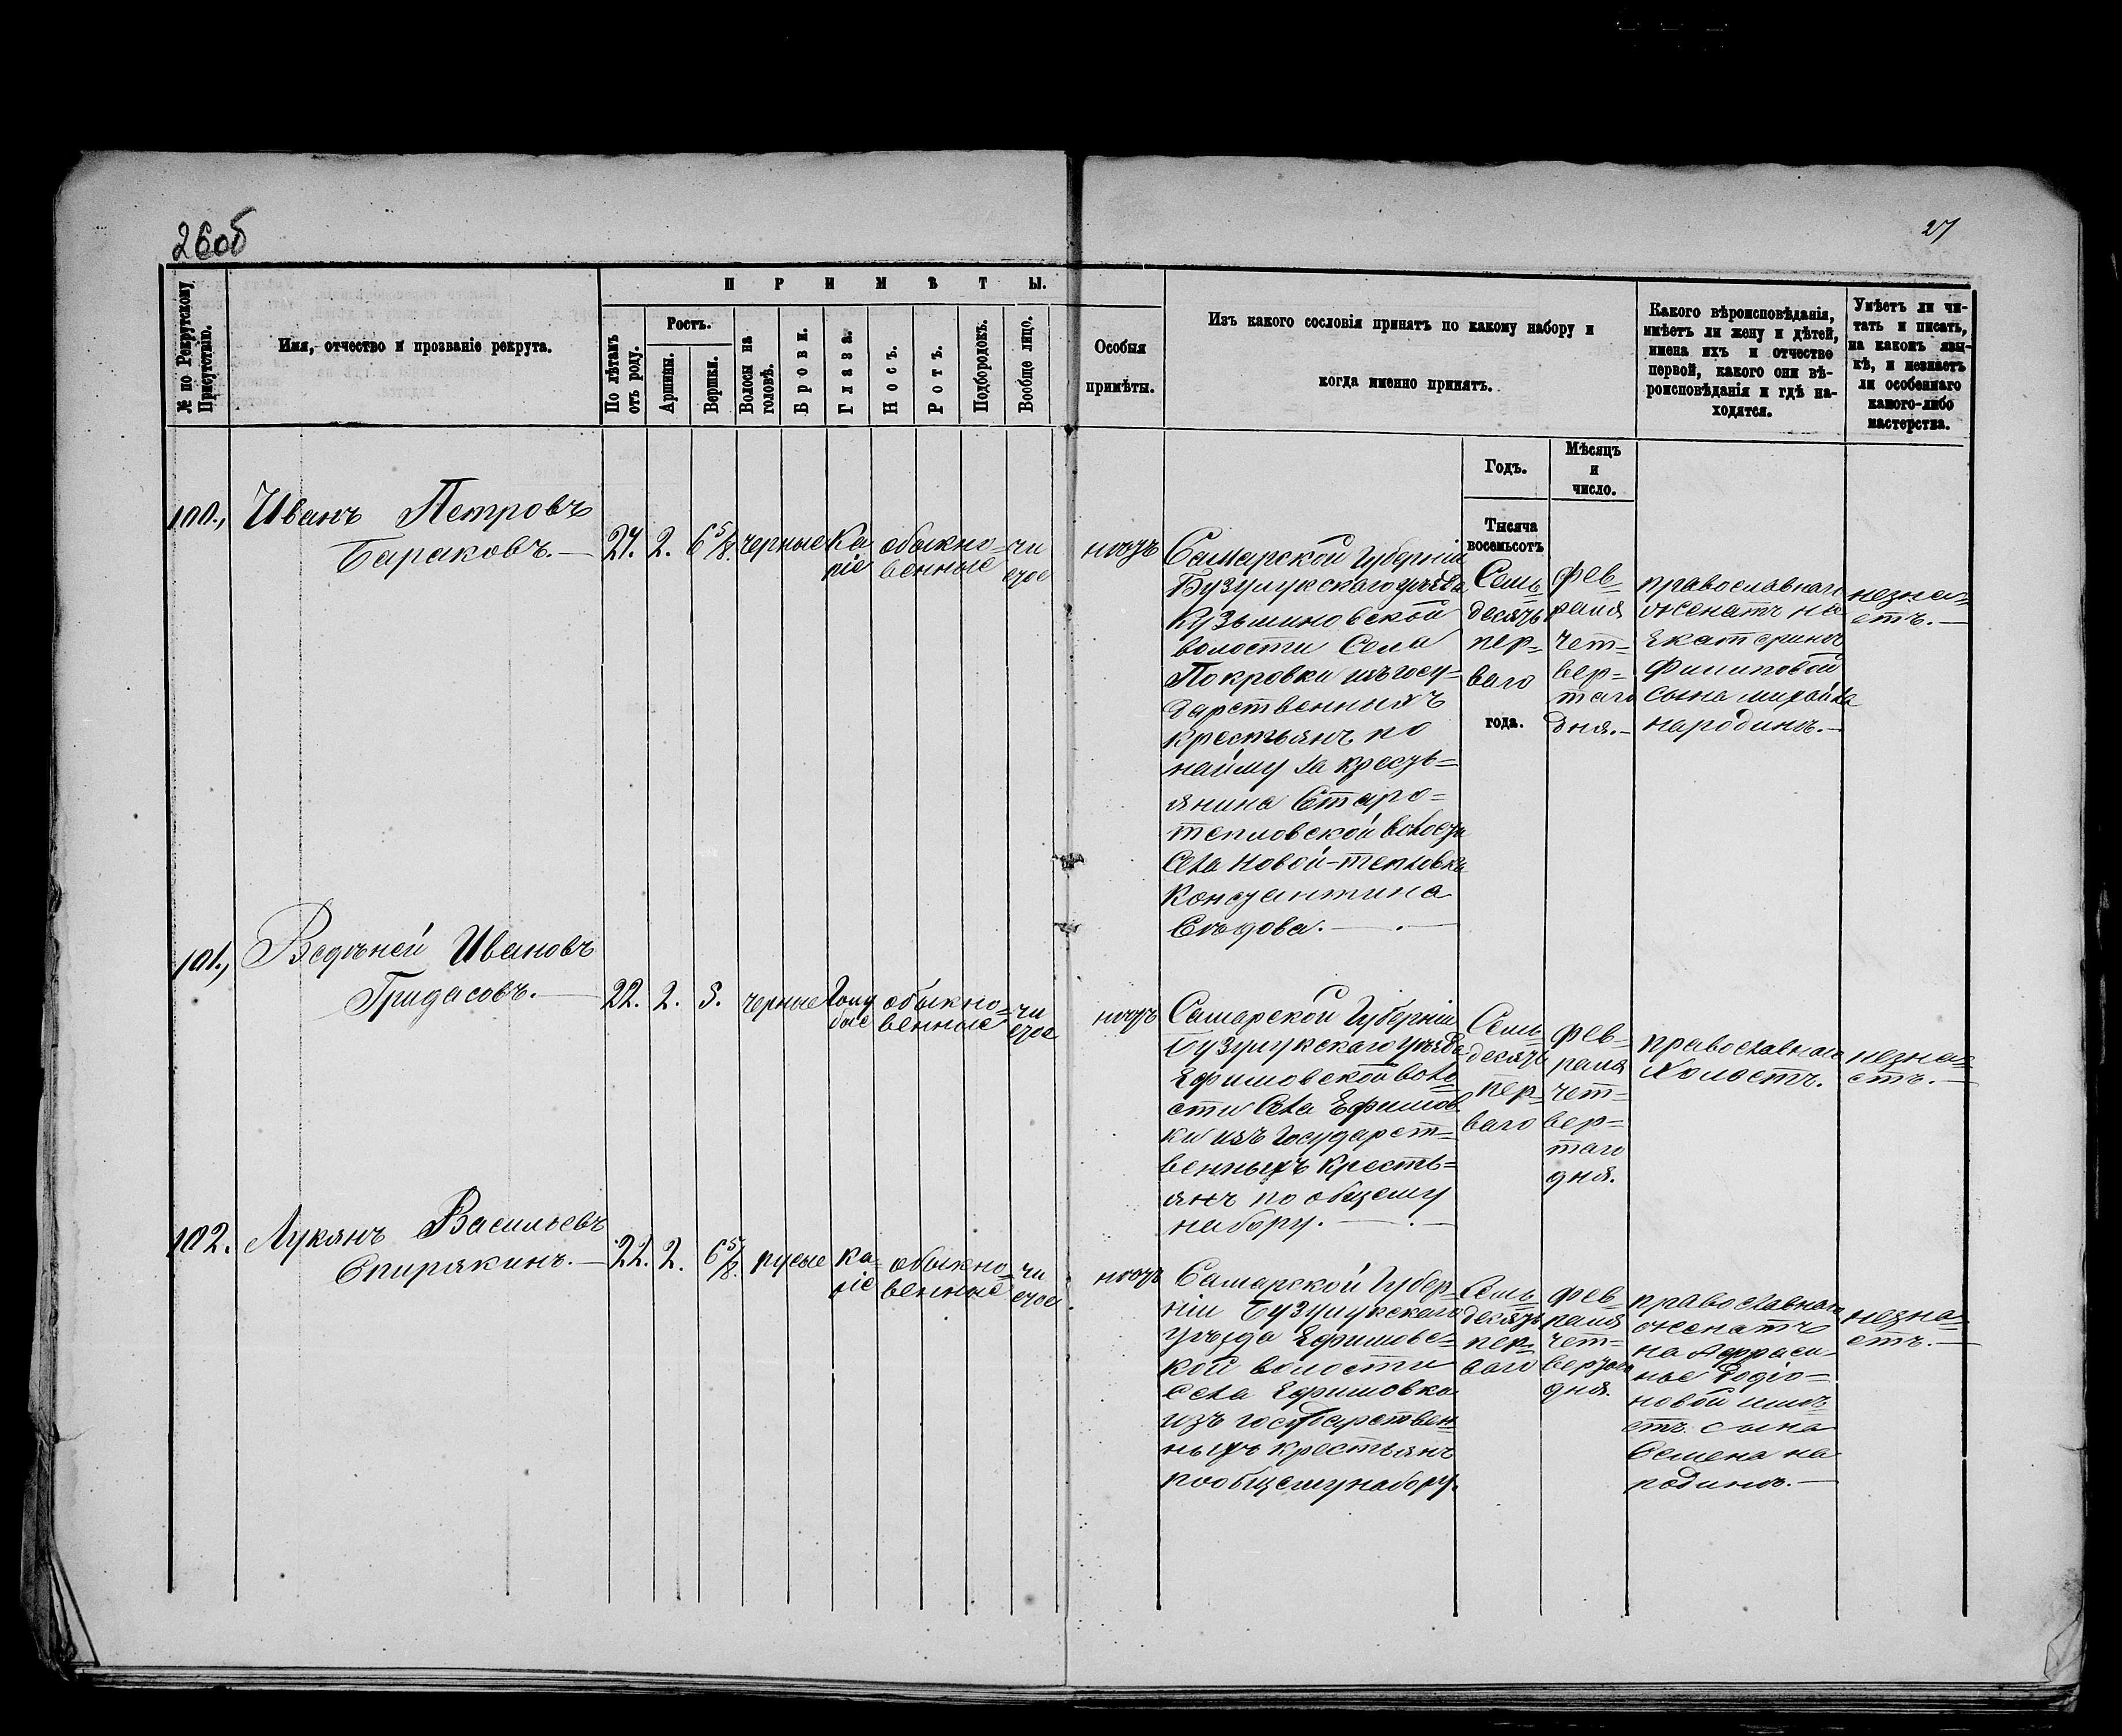 26об
27
№ по Рекрутскому Присутствію.
Имя, отчество и прозваніе рекрута.
ПРИМѢТЫ.
По лѣтамъ отъ роду.
Ростъ.
Аршины.
Вершки.
Волосы на головѣ.
Брови.
Глаза.
Носъ.
Ротъ.
Подбородокъ.
Вообще лицо.
Особыя
примѣты.
Изъ какого сословія принятъ по какому набору и
когда именно принятъ.
Какого вѣроисповѣданія,
имѣетъ ли жену и дѣтей,
имена ихъ и отчество
первой, какого они вѣ-
роисповѣданія и гдѣ на-
ходятся.
Умѣетъ ли чи-
тать и писать,
на какомъ язы-
кѣ, и незнаетъ
ли особеннаго
какого-либо
мастерства.
Годъ.
Мѣсяцъ
и
число.
Тысяча
восемьсотъ
100.,
Иванъ Петровъ
Бараковъ.—
2. 6 5/8. черные
Ка
ріе
обыкно=
венные
чи
стое
нѣтъ
Самарской Губерніи
Бузулукскаго уѣзда
Кузьминовской
волости Села
Покровки изъ госу=
дарственныхъ
Крестьянъ по
найму за кресть=
янина Старо=
тепловской волости
Села Новой-тепловки
Константина
Сѣдова. — . —
Семь
десятъ
пер=
ваго
года.
фев=
раля
чет=
вер=
таго
дня.—
православнаго
женатъ на
Екатеринѣ
Филиповой
сына михайла
народинѣ.—
незна=
етъ.—
101.,
Ивановъ
Гридасовъ.—
22. 2. 3. черные
Голу
бые
обыкно=
венные
чи
стое
нѣтъ
Самарской Губерніи
Бузулукскаго уѣзда
Ефимовской воло
сти Села Ефимов
ки изъ Государст=
венныхъ Кресть=
янъ по общему
набору. — . —
Семь
десятъ
пер=
ваго
фев=
раля
чет=
вер=
таго
дня.
православнаго
Холостъ.
незна=
етъ.—
102.
Лукянъ Васильевъ
Спирякинъ.—
22. 2. 6 5/8. русые
Ка=
ріе
обыкно=
венные
чи
стое
нѣтъ
Самарской Губер=
ніи Бузулукскаго
уѣзда Ефимовс=
кой волости
Села Ефимовка
изъ государствен=
ныхъ крестьянъ
пообщему набору.
Семь
десятъ
пер=
ваго
фев=
раля
чет=
вертаго
дня.
православнаго
женатъ
на Афраси
ньѣ Родіо=
новой имѣ=
етъ сына
Семена на
родинѣ.—
незна=
етъ.—